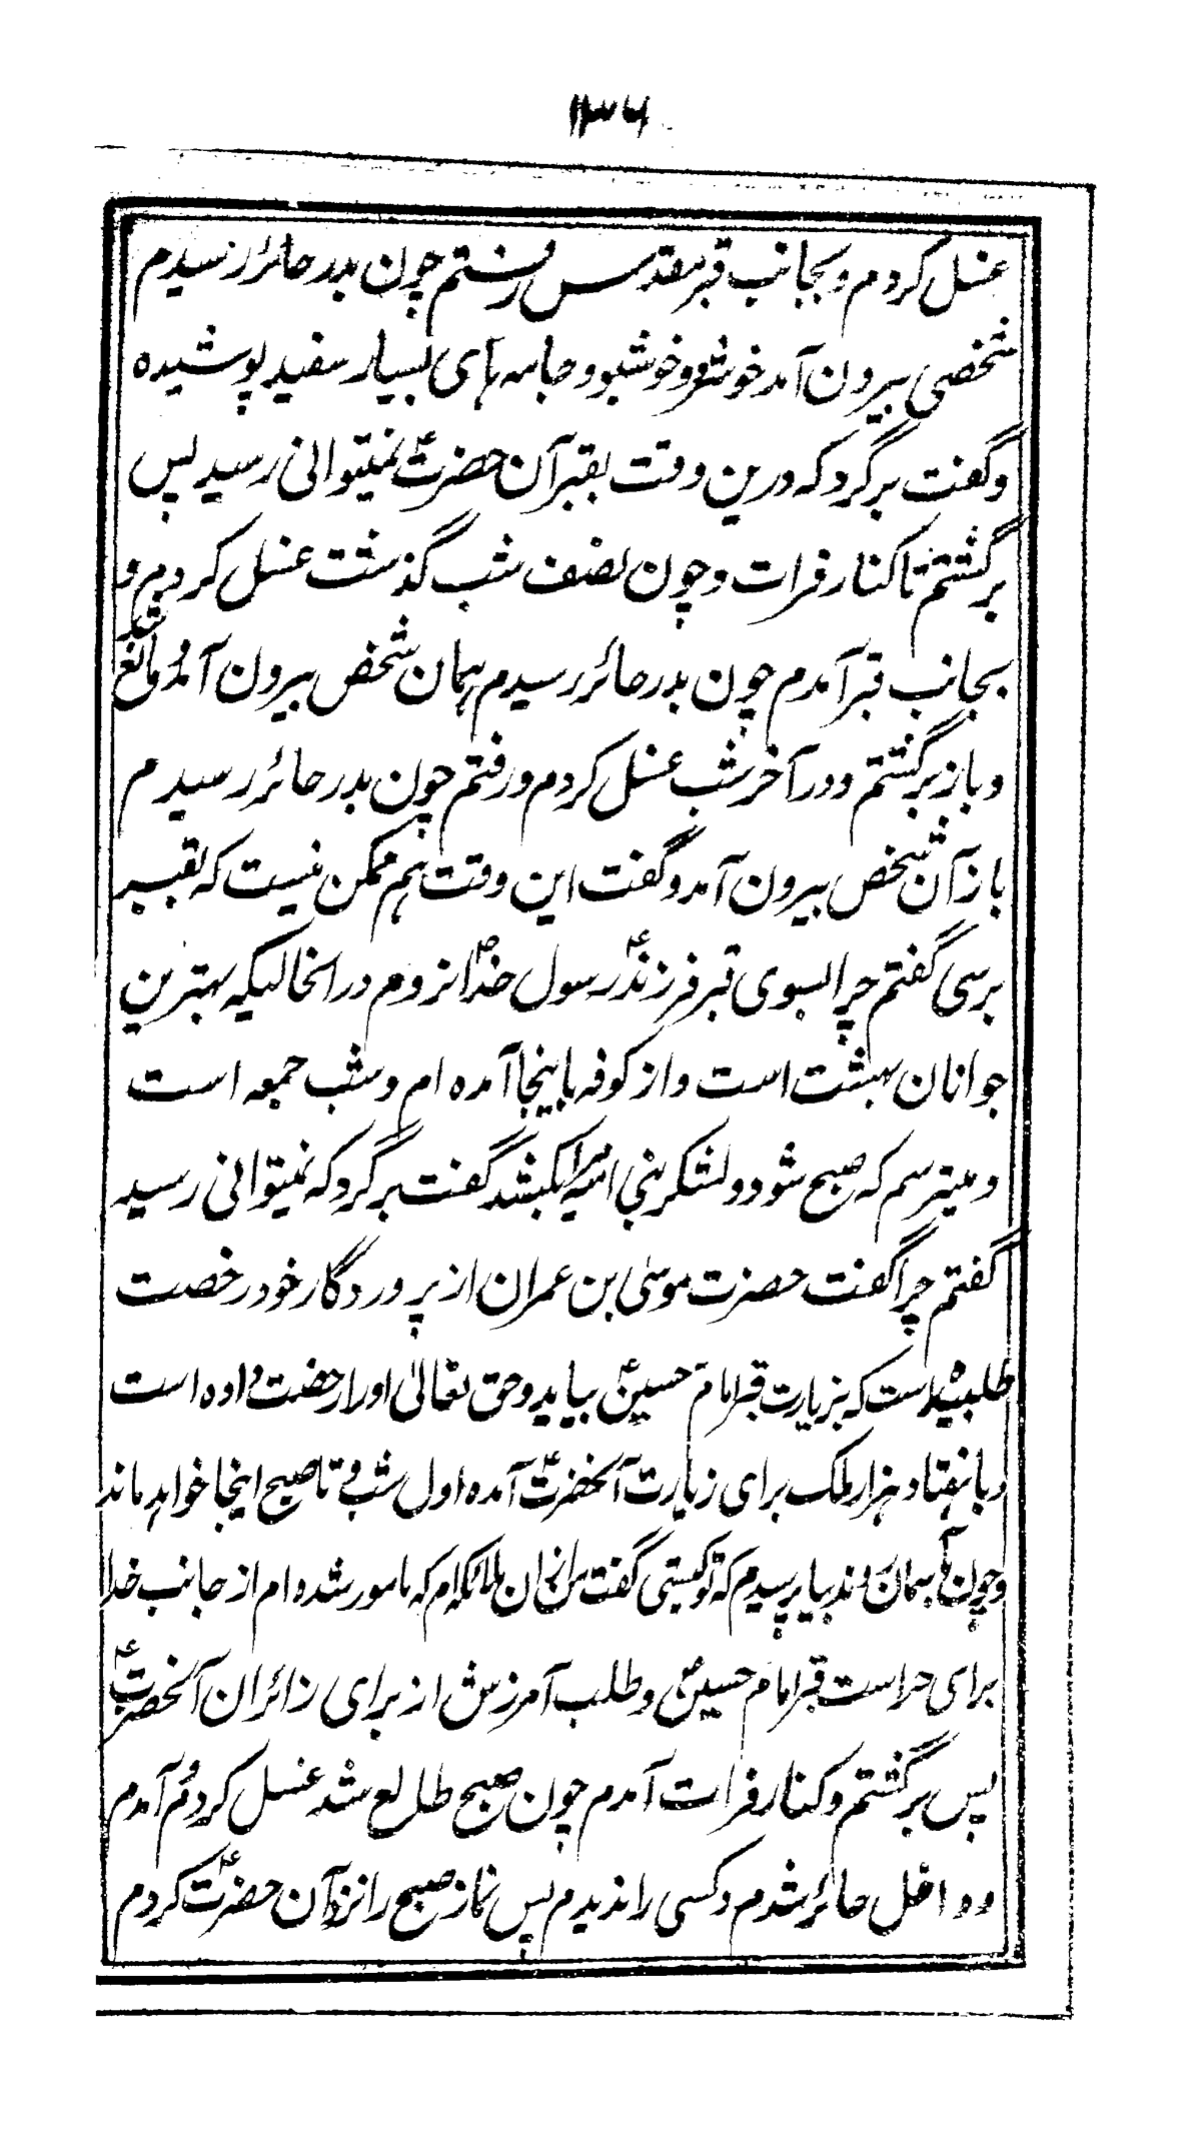 ۱۳۶
غسل کردم و بجانب قبر مقدس رفتم چون بدر حائر رسیدم
شخصی بیرون آمد خوشرو و خوشبو و جامه های بسیار سفید پوشیده
و گفت برگرد که درین وقت بقبر آن حضرتؑ نمیتوانی رسید پس
برگشتم تا کنار فرات و چون نصف شب گذشت غسل کردم و
بجانب قبر آمدم چون بدر حائر رسیدم همان شخص بیرون آمد و مانع شد
و باز برگشتم و در آخر شب غسل کردم و رفتم چون بدر حائر رسیدم
باز آن شخص بیرون آمد و گفت این وقت هم ممکن نیست که بقبر
برسی گفتم چرا بسوی قبر فرزندؑ رسول خداؐ نروم در انحالیکه بهترین
جوانان بهشت است و از کوفه باینجا آمده ام و شب جمعه است
و میترسم که صبح شود و لشکر بنی امیه مرا بکشند گفت برگرد که نمیتوانی رسید
گفتم چرا گفت حضرت موسی بن عمران از پروردگار خود رخصت
طلبیده است که بزیارت قبر امام حسینؑ بیاید و حق تعالی او را رخصت داده است
و با هفتاد هزار ملک برای زیارت آنحضرتؑ آمده اول شب و تا صبح اینجا خواهد ماند
و چون بآسمان روند بیا پرسیدم که تو کیستی گفت من از ان ملائکه ام که مامور شده ام از جانب خدا
برای حراست قبر امام حسینؑ و طلب آمرزش از برای زائران آنحضرتؑ
پس برگشتم و کنار فرات آمدم چون صبح طالع شد غسل کردم و آمدم
و داخل حائر شدم و کسی را ندیدم پس نماز صبح را نزد آن حضرتؑ کردم